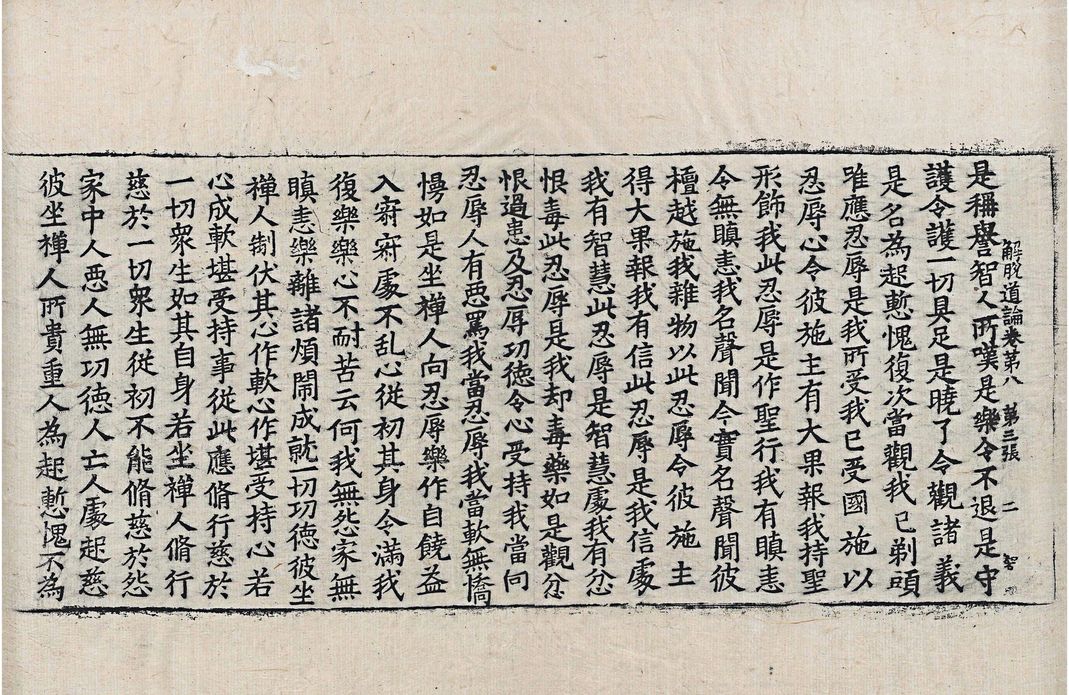 解脫道論卷第八 第三張 二 智
是稱譽智人所嘆是樂令不退是守
護令護一切具足是曉了令觀諸義
是名為起慙愧復次當觀我已剃頭
唯應忍辱是我所受我已受國施以
忍辱心令彼施主有大果報我持聖
形飾我此忍辱是作聖行我有瞋恚
令無瞋恚我名聲聞今實名聲聞彼
檀越施我雜物以此忍辱令彼施主
得大果報我有信此忍辱是我信處
我有智慧此忍辱是智慧處我有忿
恨毒此忍辱是我却毒藥如是觀忿
恨過患及忍辱功德令心受持我當向
忍辱人有惡罵我當忍辱我當軟無憍
慢如是坐禪人向忍辱樂作自饒益
入寂寂處不乱心從初其身令滿我
復樂樂心不耐苦云何我無怨家無
瞋恚樂離諸煩鬧成就一切功德彼坐
禪人制伏其心作軟心作堪受持心若
心成軟堪受持事從此應脩行慈於
一切衆生如其自身若坐禪人脩行
慈於一切衆生從初不能脩慈於怨
家中人惡人無功德人亡人處起慈
彼坐禪人所貴重人為起慙愧不為